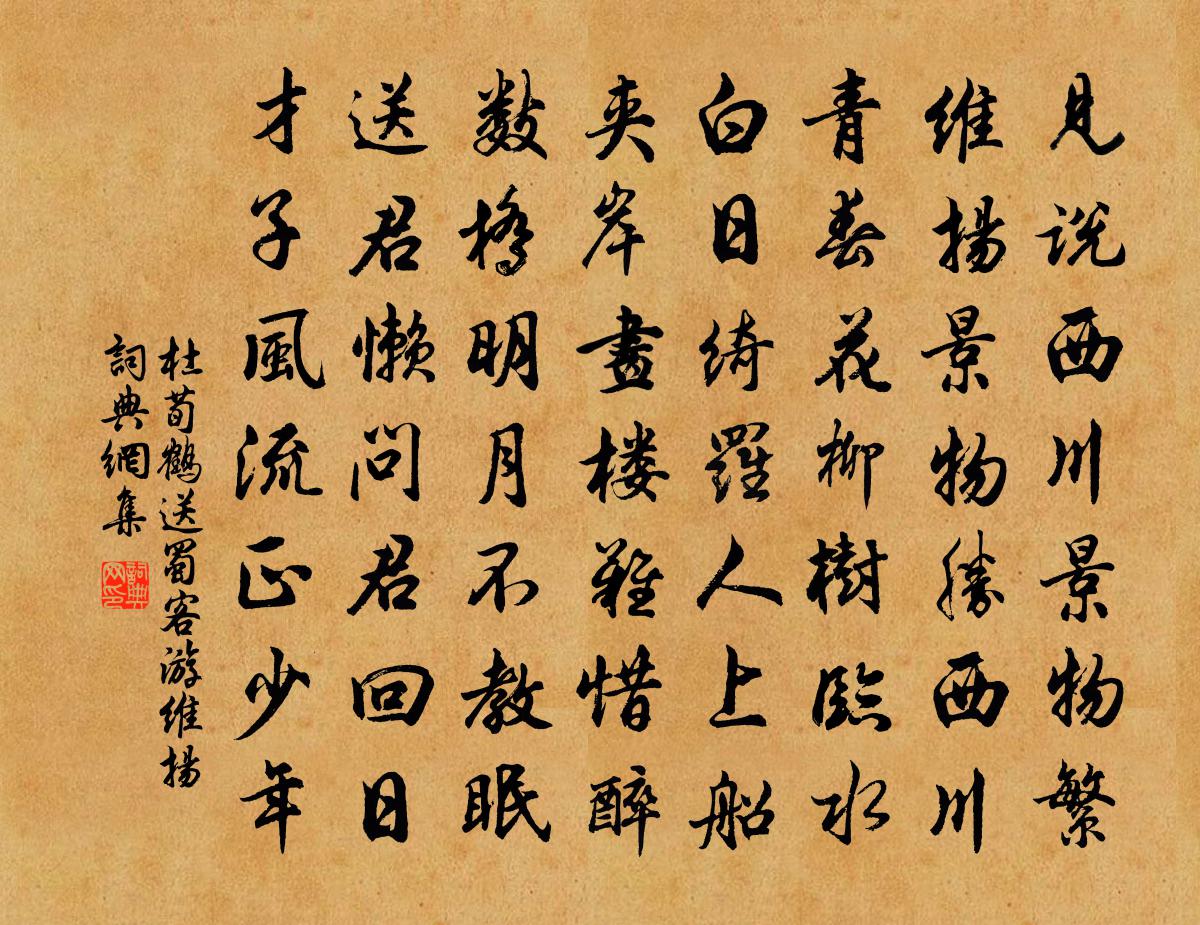 見說西川景物繁
維揚景物勝西川
青春花柳樹臨水
白日綺羅人上船
夾岸畫樓難惜醉
數橋明月不教眠
送君懶問君回日
才子風流正少年
杜荀鶴送蜀客游維揚
詞典網集
詞典网印